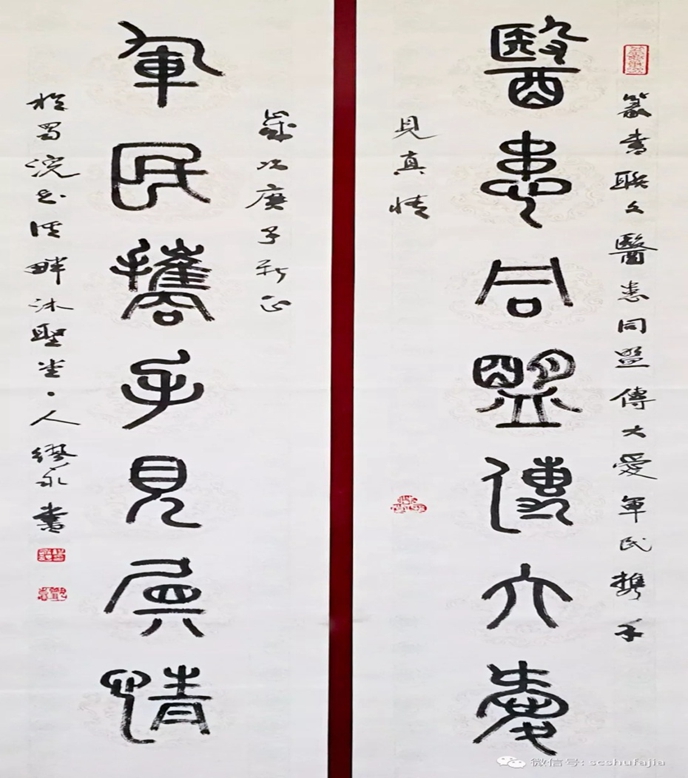 篆書聯文醫患同盟傳大愛軍民携手
醫患同盟傳大愛
見真情
歲次庚子新正
軍民攜手見真情
於蜀浣花溪畔沐聖堂主人繆永書
微信号: scshufajia